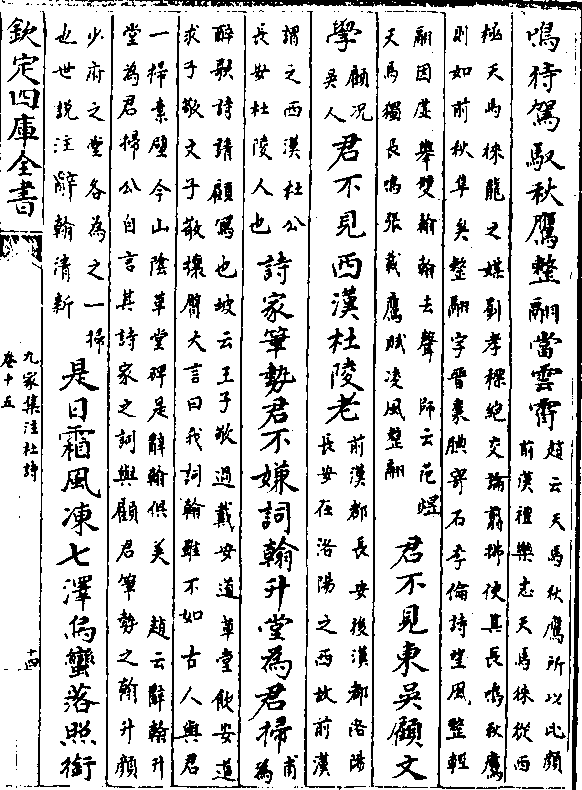 鳴待駕馭秋鷹整翮當雲霄
趙云天馬秋鷹所以比顧
前漢禮樂志天馬徠從西
極天馬徠龍之媒劉孝標絶交論翦拂使其長鳴秋鷹
則如前秋隼矣整翮字晉棗腆寄石季倫詩望風整輕
翮因虚舉雙翰翰去聲 師云范煜
天馬獨長鳴張載鷹賦凌風整翮
君不見東吳顧文
學
顧況
吳人
君不見西漢杜陵老
前漢都長安後漢都洛陽
長安在洛陽之西故前漢
謂之西漢杜公
長安杜陵人也
詩家筆勢君不嫌詞翰升堂為君掃
甫
為
醉歌詩請顧寫也坡云王子敬過戴安道草堂飲安道
求子敬文子敬攘臂大言曰我詞翰雖不如古人與君
一掃素壁今山陰草堂碑是辭翰俱美 趙云辭翰升
堂為君掃公自言其詩家之詞與顧君筆勢之翰升顧
少府之堂各為之一掃
也世説注辭翰清新
是日霜風凍七澤烏蠻落照銜
欽定四庫全書
九家集注杜詩
卷十五
十四